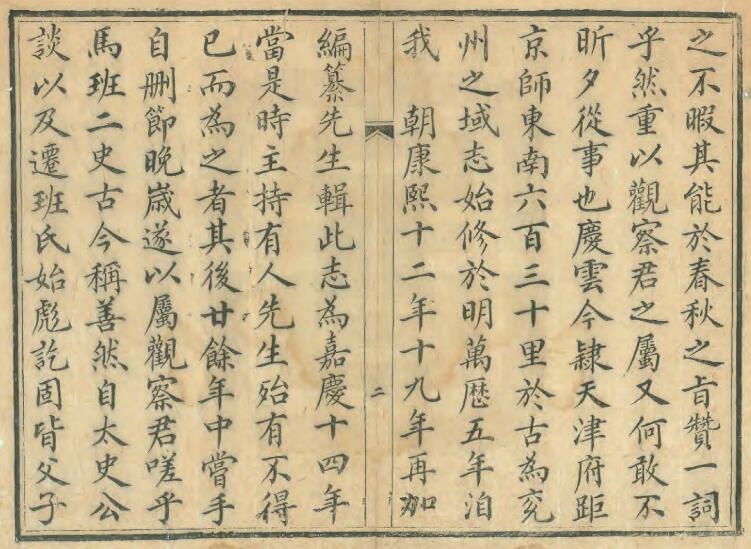 之不暇其能於春秋之㫖贊一詞
乎然重以觀察君之屬又何敢不
昕夕從事也慶雲今隸天津府距
京師東南六百三十里於古為兖
州之域志始修於明萬歴五年洎
我 朝康熙十二年十九年再加
二
編纂先生輯此志為嘉慶十四年
當是時主持有人先生殆有不得
已而為之者其後廿餘年中嘗手
自刪節晚嵗遂以屬觀察君嗟乎
馬班二史古今稱善然自太史公
談以及遷班氏始彪訖固皆父子